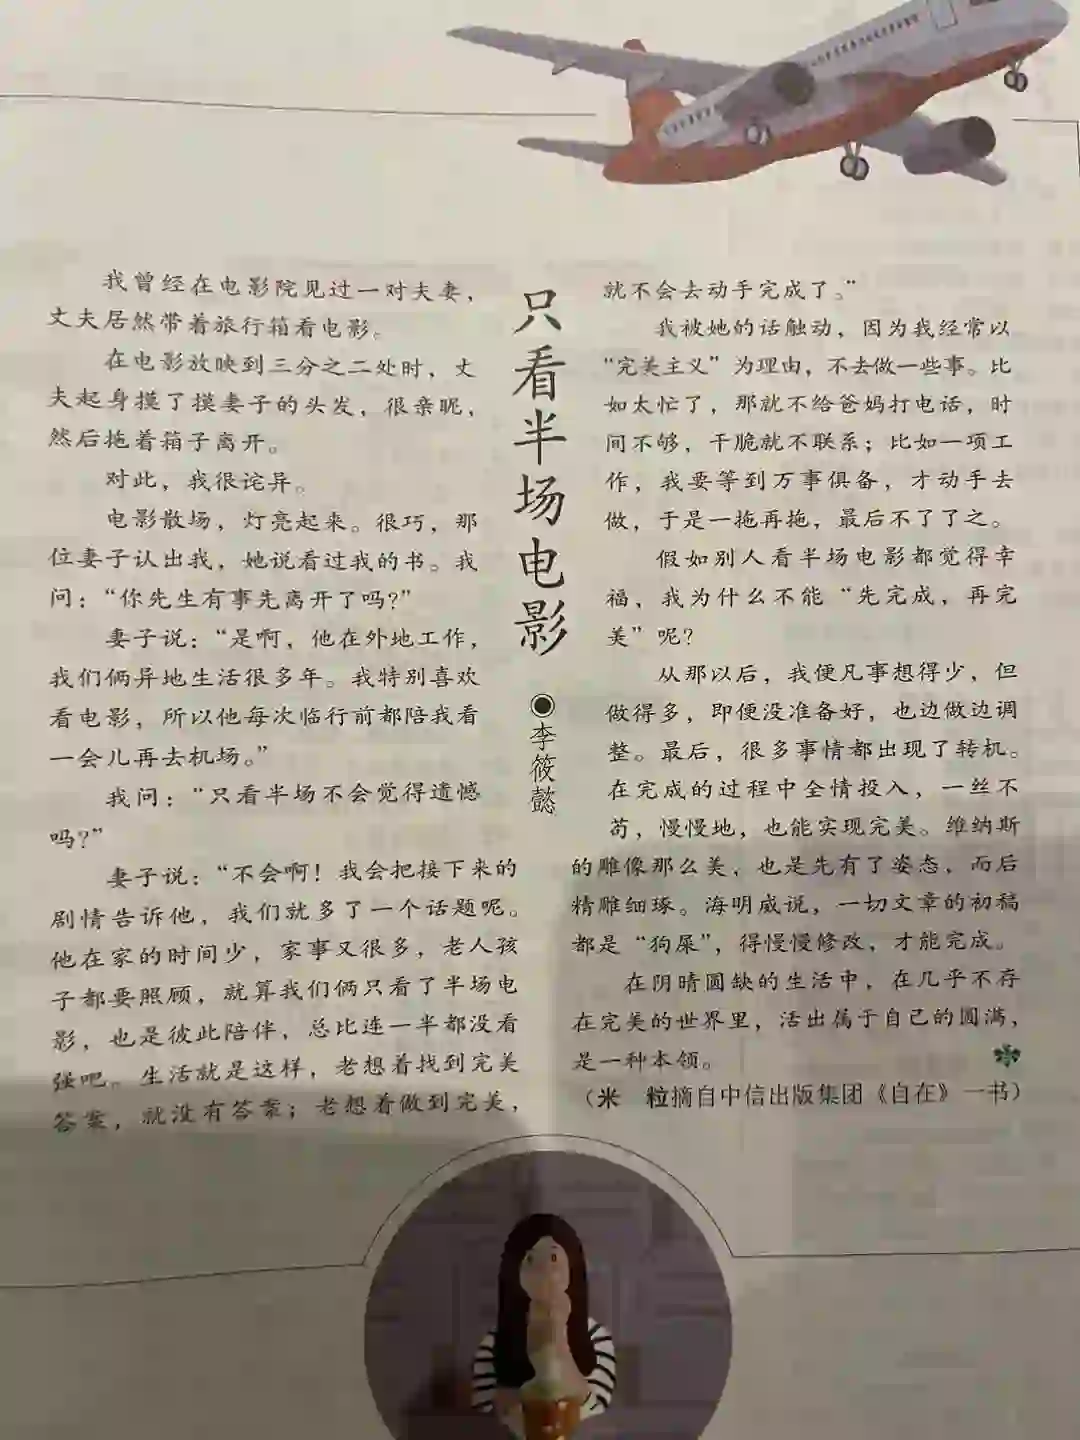 只看半场电影
◉李筱懿
我曾经在电影院见过一对夫妻，
丈夫居然带着旅行箱看电影。
在电影放映到三分之二处时，丈
夫起身摸了摸妻子的头发，很亲昵，
然后拖着箱子离开。
对此，我很诧异。
电影散场，灯亮起来。很巧，那
位妻子认出我，她说看过我的书。我
问：“你先生有事先离开了吗？”
妻子说：“是啊，他在外地工作，
我们俩异地生活很多年。我特别喜欢
看电影，所以他每次临行前都陪我看
一会儿再去机场。”
我问：“只看半场不会觉得遗憾
吗？”
妻子说：“不会啊！我会把接下来的
剧情告诉他，我们就多了一个话题呢。
他在家的时间少，家事又很多，老人孩
子都要照顾，就算我们俩只看了半场电
影，也是彼此陪伴，总比连一半都没看
强吧。生活就是这样，老想着找到完美
答案，就没有答案；老想着做到完美，
就不会去动手完成了。”
我被她的话触动，因为我经常以
“完美主义”为理由，不去做一些事。比
如太忙了，那就不给爸妈打电话，时
间不够，干脆就不联系；比如一项工
作，我要等到万事俱备，才动手去
做，于是一拖再拖，最后不了了之。
假如别人看半场电影都觉得幸
福，我为什么不能“先完成，再完
美”呢？
从那以后，我便凡事想得少，但
做得多，即便没准备好，也边做边调
整。最后，很多事情都出现了转机。
在完成的过程中全情投入，一丝不
苟，慢慢地，也能实现完美。维纳斯
的雕像那么美，也是先有了姿态，而后
精雕细琢。海明威说，一切文章的初稿
都是“狗屎”，得慢慢修改，才能完成。
在阴晴圆缺的生活中，在几乎不存
在完美的世界里，活出属于自己的圆满，
是一种本领。
（米　粒摘自中信出版集团《自在》一书）